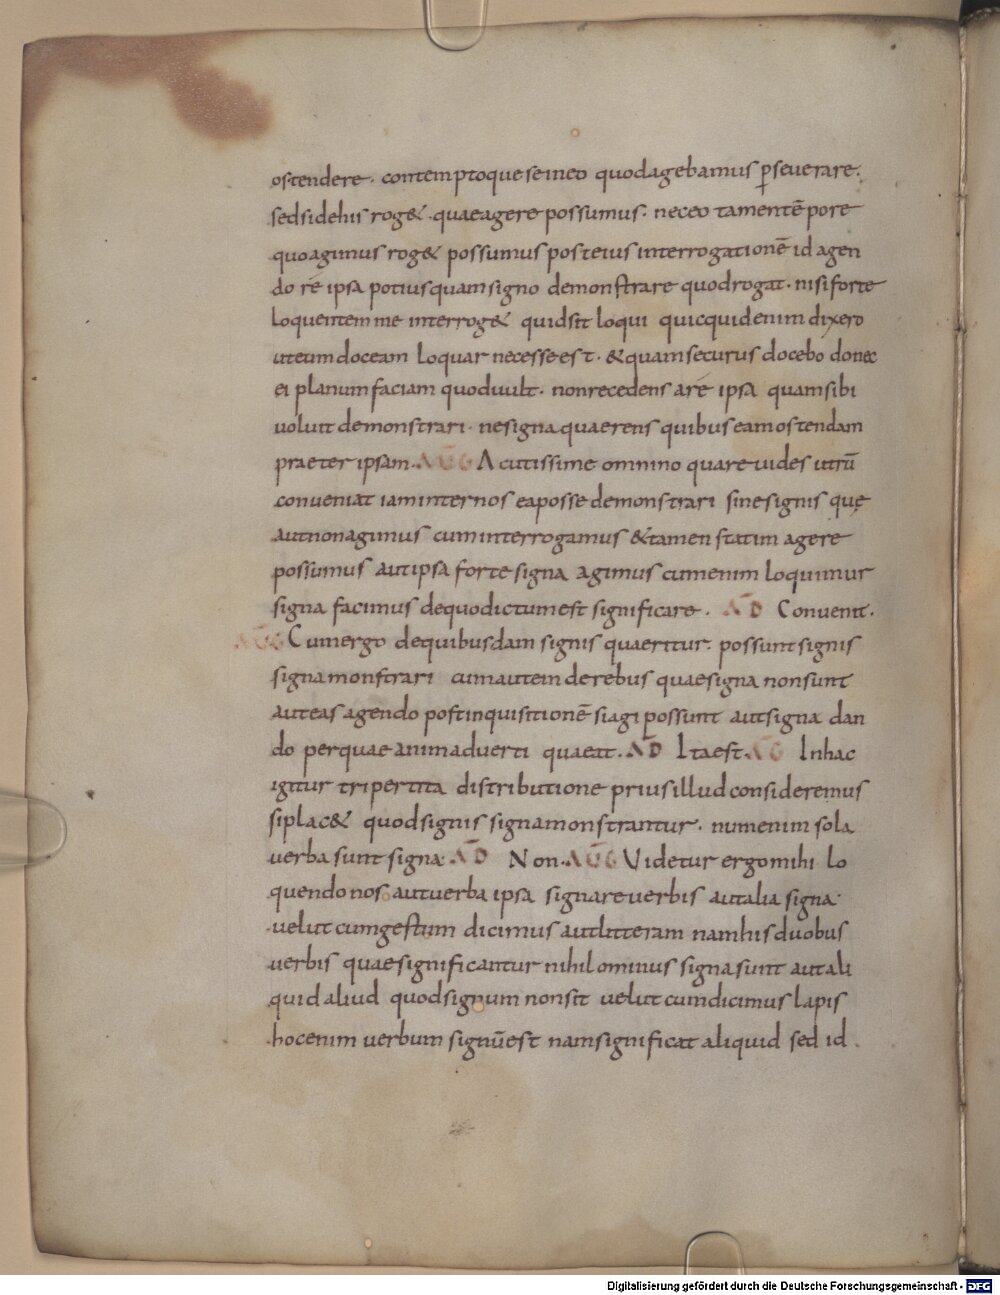 ostendere. contemptoque se in eo quod agebamus ꝑseuerare.
sed si de his rog&. quae agere possumus. nec eo tamen tēpore
quo agimus rog& possumus post eius interrogationē id agen
do rē ipsa potius quam signo demonstrare quod rogat. nisi forte
loquentem me interrog& quid sit loqui quicquid enim dixero
ut eum doceam loquar necesse est. & quam securus docebo donec
ei planum faciam quod uult. non recedens a rē ipsa quam sibi
uoluit demonstrari. ne signa quaerens quibus eam ostendam
praeter ipsam. AUG Acutissime omnino quare uides utrū
conueniat iam inter nos ea posse demonstrari sine signis quę
aut non agimus cum interrogamus & tamen statim agere
possumus aut ipsa forte signa agimus cum enim loquimur
signa facimus de quo dictum est significare. AD Conuenit.
AUG Cum ergo de quibusdam signis quaeritur. possunt signis
signa monstrari cum autem de rebus quae signa non sunt
aut eas agendo post inquisitionē si agi possunt aut signa dan
do per quae animaduerti queant. AD Ita est. AUG In hac
igitur tripertita distributione prius illud consideremus
si plac& quod signis signa monstrantur. num enim sola
uerba sunt signa AD Non. AUG Videtur ergo mihi lo
quendo nos aut uerba ipsa signare uerbis aut alia signa.
uelut cum gestum dicimus aut litteram nam his duobus
uerbis quae significantur nihilominus signa sunt aut ali
quid aliud quod signum non sit uelut cum dicimus lapis
hoc enim uerbum signū est nam significat aliquid sed id
Digitalisierung gefördert durch die Deutsche Forschungsgemeinschaft - DFG